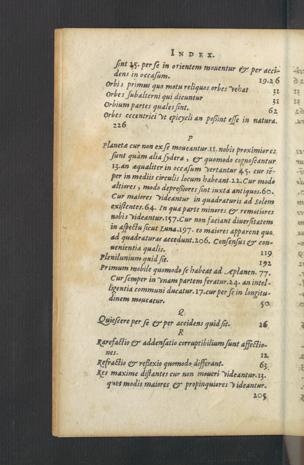 INDEX.
sint 25. per se in orientem mouentur & per acci-
dens in occasum. 19.26
Orbis primus quo motu reliquos orbes vehat 31
Orbes subalterni qui dicuntur 31
Orbium partes quales sint. 62
Orbes eccentrici et epicycli an possint esse in natura.
226
P
Planeta cur non ex se moueantur. 11. nobis proximiores
sunt quàm alia sydera, & quomodo cognoscantur
13. an æqualiter in occasum vertantur 45. cur sẽ-
per in medijs circulis locum habeant. 22. Cur modo
altiores, modo depressiores sint iuxta antiquos. 60.
Cur maiores videantur in quadraturis ad solem
existentes. 64. In qua parte minores & remotiores
nobis videantur. 157. Cur non faciant diuersitatem
in aspectu sicut Luna. 197. eo maiores apparent quo
ad quadraturas accedunt. 206. Consensus & con-
uenientia qualis. 119
Plenilunium quid sit. 192
Primum mobile quomodo se habeat ad 77.
Cur semper in vnam partem feratur. 24. an intel-
ligentia communi ducatur. 17. cur per se in longitu-
dinem moueatur. 50
Q
Quiescere per se & per accidens quid sit. 26
R
Rarefactio & addensatio corruptibilium sunt affectio-
nes. 12
Refractio & reflexio quomodo differant. 63
Res maxime distantes cur non moueri videantur. 13.
quot modis maiores & propinquiores videantur.
205